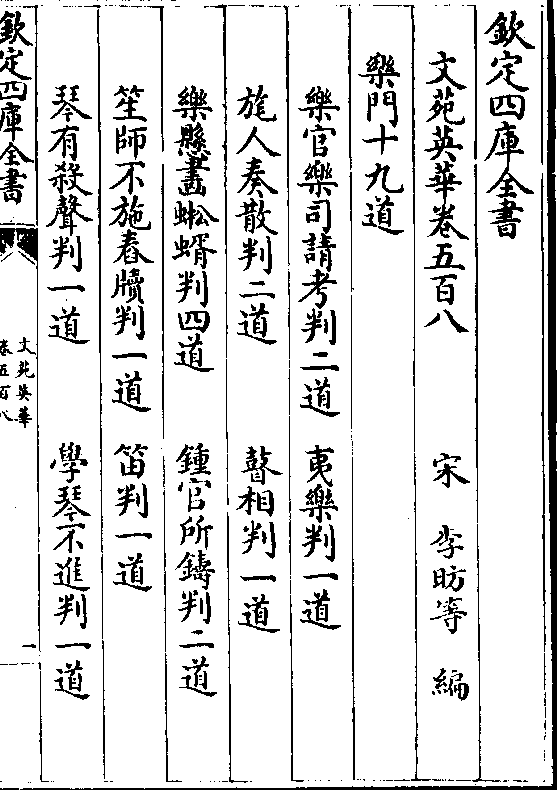 欽定四庫全書
文苑英華卷五百八
宋 李昉等 編
樂門十九道
樂官樂司請考判二道 夷樂判一道
旄人奏散判二道 瞽相判一道
樂懸畫蚣蝑判四道 鍾官所鑄判二道
笙師不施舂牘判一道 笛判一道
琴有殺聲判一道 學琴不進判一道
欽定四庫全書
文苑英華
卷五百八
一